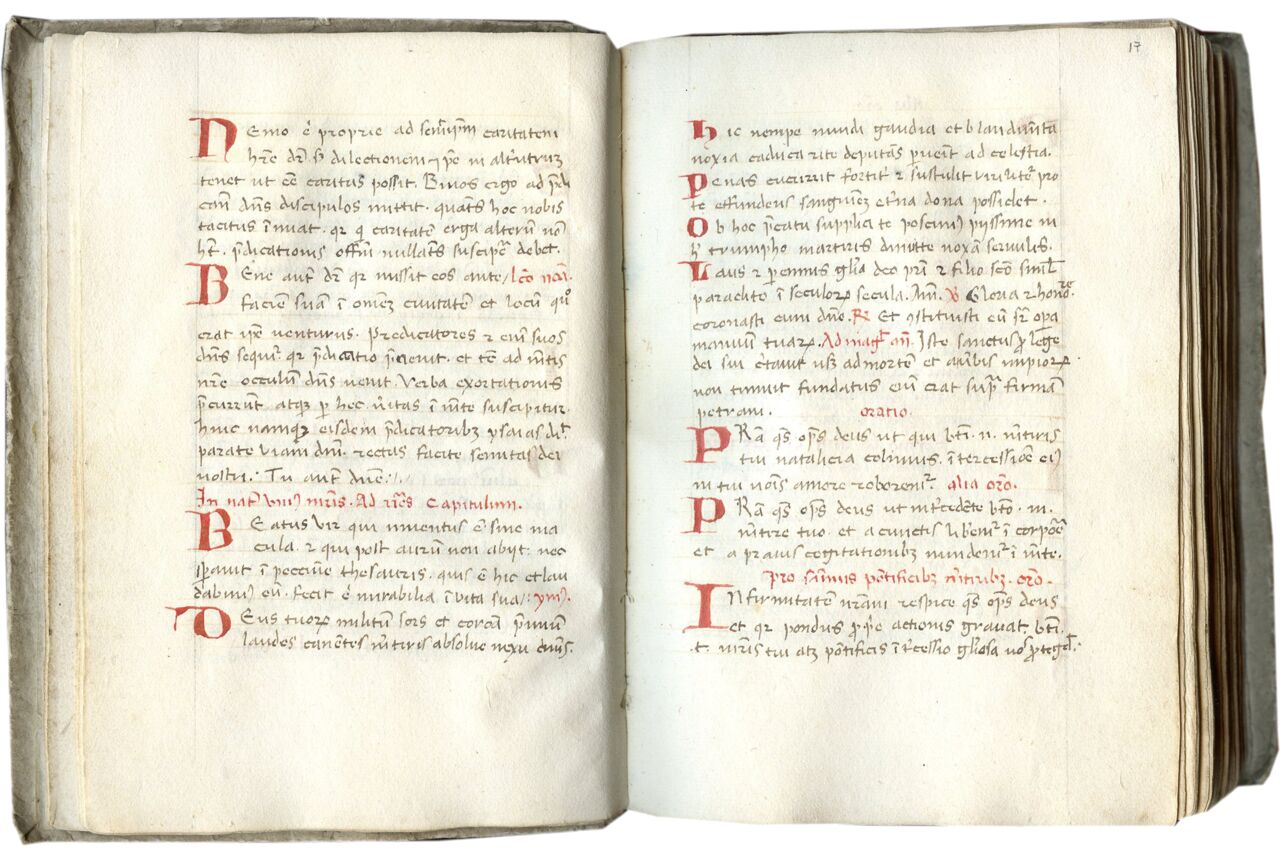 Nemo ē proprie ad semītip̄m caritatem
h̄re d̄r. s̄ dilectionem i p̄e in alt̓utrum
tenet ut cē caritas possit. Binos ergo ad p̄di
cān̄ dn̄s discipulos mittit. quat̄s hoc nobis
tacitus īnuat. qr q caritatē erga alterū nō
h̄t. p̄dicationis offm̄ nullat̄s suscip̄e debet.
Bene aut̄ d̄r qr missit eos ante lc̄o
faciē suā ī omnē ciuitatē et locū quo
erat ip̄e venturus. Predicatores ꝛ enī suos
dn̄s sequit̄. qr p̄dicatio p̄uenit. et tē ad mētis
nr̄e occulum dn̄s uenit. verba exortationis
p̄currunt. atqꝫ ꝑ hec uītas ī mēte suscipitur.
hinc namqꝫ eisdem p̄dicatoribꝫ ysaias dit̄.
parate viam dn̄i. rectas facite semitas dei
nostri. Tu aut̄ dn̄e.
In nat̄ uni mr̄is. Ad Capitulum.
Beatus vir qui inuentus ē sine ma
cula. ꝛ qui post aurū non abijt. nec
sp̄auit ī peccuīe thesauris. quis ē hic et lau
dabimꝰ eū. fecit ē mirabilia ī vita sua. ymꝰ.
Deus tuoꝝ militum sors et corōa p̄mium
laudes canētes mr̄tiris absolue nexu c̄mīs.
17
Hic nempe mundi gaudia et blandimēta
noxia caduca rite deputās ꝑuēit ad celestia.
Penas cucurrit fortit̓ ꝛ sustulit virilit̓ pro
te effundens sanguinē et̓na dona possidet.
Ob hoc p̄catu supplici te poscimꝰ pyssime in
h̓ triumpho martiris dimite noxā seruulis.
Laus ꝛ pennis gl̄ia deo pr̄i ꝛ filio sc̄o simul
paraclito ī seculoꝝ secula. Am̄. ℣ Gloria ꝛ honore
coronasti eum dn̄e. ℟ Et ꝯstituisti eū sr̄ opa
manuum tuaꝝ. Ad mag̓ an̄. Iste sanctus ꝓ lege
dei sui c̓tauit usqꝫ ad mortē et a uībis impioꝝ
non timuit fundatus enī erat supra firmam
petram. oratio.
PRa q̄s op̄s deus ut qui bt̄i .n. mr̄tiris
tui natalicia colimus. ītercessiōe eiꝰ
in tui noīs amore roboremꝰ. alia or̄o.
PRa q̄s op̄s deus ut īt̓cedēte bt̄o .n.
mr̄tire tuo. et a cunctis lib̓emꝰ ī corpore
et a prauis cogitationibꝫ mundemꝰ ī mēte.
pro pōtificibꝫ mr̄tiribꝫ. or̄o.
Infirmitatē nr̄am respice q̄s op̄s deus
et qr pondus ꝓpe actionis grauat. bt̄i.
.t. mr̄is tui atqꝫ pōtificis īt̓cessio gl̄iosa nos ꝓtegat.